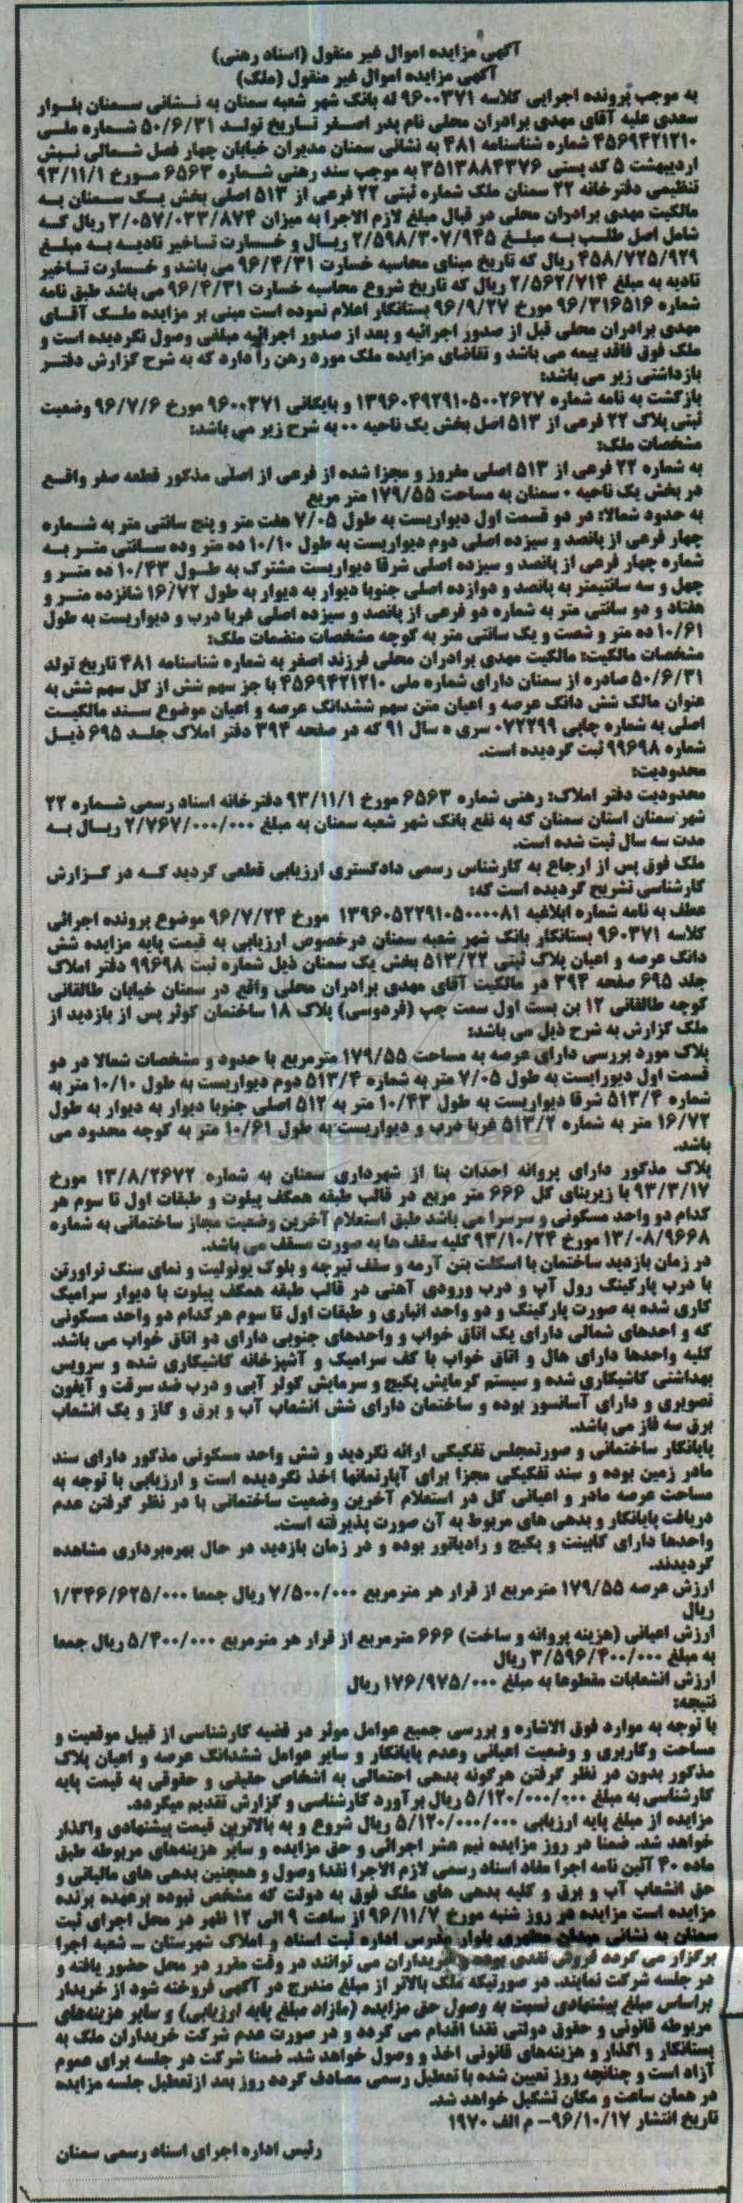 آگهی مزایده اموال غیر منقول (اسناد رهنی)
آگهی مزایده اموال غیر منقول (ملک)
به موجب پرونده اجرایی کلاسه ۹۶۰۰۳۷۱ له بانک شهر شعبه سمنان به نشانی سمنان بلوار
سعدی علیه آقای مهدی برادران محلی نام پدر اصغر تاریخ تولد ۵۰/۶/۳۱ شماره ملی
۴۵۶۹۴۲۱۲۱۰ شماره شناسنامه ۴۸۱ به نشانی سمنان مدیران خیابان چهار فصل شمالی نبش
اردیبهشت ۵ کد پستی ۳۵۱۳۸۸۴۳۷۶ به موجب سند رهنی شماره ۶۵۶۳ مورخ ۹۳/۱۱/۱
تنظیمی دفترخانه ۲۲ سمنان ملک شماره ثبتی ۲۲ فرعی از ۵۱۳ اصلی بخش یک سمنان به
مالکیت مهدی برادران محلی در قبال مبلغ لازم الاجرا به میزان ۳/۰۵۷/۰۳۳/۸۷۴ ریال که
شامل اصل طلب به مبلغ ۲/۵۹۸/۳۰۷/۹۴۵ ریال و خسارت تاخیر تادیه به مبلغ
۴۵۸/۷۲۵/۹۲۹ ریال که تاریخ مبنای محاسبه خسارت ۹۶/۴/۳۱ می باشد و خسارت تاخیر
تادیه به مبلغ ۲/۵۶۲/۷۱۴ ریال که تاریخ شروع محاسبه خسارت ۹۶/۴/۳۱ می باشد طبق نامه
شماره ۹۶/۳۱۶۵۱۶ مورخ ۹۶/۹/۲۷ بستانکار اعلام نموده است مبنی بر مزایده ملک آقای
مهدی برادران محلی قبل از صدور اجرائیه و بعد از صدور اجرائیه مبلغی وصول نگردیده است و
ملک فوق فاقد بیمه می باشد و تقاضای مزایده ملک مورد رهن را دارد که به شرح گزارش دفتر
بازداشتی زیر می باشد:
بازگشت به نامه شماره ۱۳۹۶۰۴۹۲۹۱۰۵۰۰۲۶۲۷ و بایگانی ۹۶۰۰۳۷۱ مورخ ۹۶/۷/۶ وضعیت
ثبتی پلاک ۲۲ فرعی از ۵۱۳ اصل بخش یک ناحیه ۰۰ به شرح زیر می باشد:
مشخصات ملک:
به شماره ۲۲ فرعی از ۵۱۳ اصلی مفروز و مجزا شده از فرعی از اصلی مذکور قطعه صفر واقع
در بخش یک ناحیه ۰ سمنان به مساحت ۱۷۹/۵۵ متر مربع
به حدود شمالا: در دو قسمت اول دیواریست به طول ۷/۰۵ هفت متر و پنج سانتی متر به شماره
چهار فرعی از پانصد و سیزده اصلی دوم دیواریست به طول ۱۰/۱۰ ده متر وده سانتی متر به
شماره چهار فرعی از پانصد و سیزده اصلی شرقا دیواریست مشترک به طول ۱۰/۴۳ ده متر و
چهل و سه سانتیمتر به پانصد و دوازده اصلی جنوبا دیوار به دیوار به طول ۱۶/۷۲ شانزده متر و
هفتاد و دو سانتی متر به شماره دو فرعی از پانصد و سیزده اصلی غربا درب و دیواریست به طول
۱۰/۶۱ ده متر و شصت و یک سانتی متر به کوچه مشخصات منضمات ملک:
مشخصات مالکیت: مالکیت مهدی برادران محلی فرزند اصغر به شماره شناسنامه ۴۸۱ تاریخ تولد
۵۰/۶/۳۱ صادره از سمنان دارای شماره ملی ۴۵۶۹۴۲۱۲۱۰ با جز سهم شش از کل سهم شش به
عنوان مالک شش دانگ عرصه و اعیان متن سهم ششدانگ عرصه و اعیان موضوع سند مالکیت
اصلی به شماره چاپی ۰۷۲۲۹۹ سری ه سال ۹۱ که در صفحه ۳۹۴ دفتر املاک جلد ۶۹۵ ذیل
شماره ۹۹۶۹۸ ثبت گردیده است.
محدودیت:
محدودیت دفتر املاک: رهنی شماره ۶۵۶۳ مورخ ۹۳/۱۱/۱ دفترخانه اسناد رسمی شماره ۲۲
شهر سمنان استان سمنان که به نفع بانک شهر شعبه سمنان به مبلغ ۲/۷۶۷/۰۰۰/۰۰۰ ریال به
مدت سه سال ثبت شده است.
ملک فوق پس از ارجاع به کارشناس رسمی دادگستری ارزیابی قطعی گردید که در گزارش
کارشناسی تشریح گردیده است که:
عطف به نامه شماره ابلاغیه ۱۳۹۶۰۵۲۲۹۱۰۵۰۰۰۰۸۱ مورخ ۹۶/۷/۲۴ موضوع پرونده اجرائی
کلاسه ۹۶۰۳۷۱ بستانکار بانک شهر شعبه سمنان درخصوص ارزیابی به قیمت پایه مزایده شش
دانگ عرصه و اعیان پلاک ثبتی ۵۱۳/۲۲ بخش یک سمنان ذیل شماره ثبت ۹۹۶۹۸ دفتر املاک
جلد ۶۹۵ صفحه ۳۹۴ در مالکیت آقای مهدی برادران محلی واقع در سمنان خیابان طالقانی
کوچه طالقانی ۱۲ بن بست اول سمت چپ (فردوسی) پلاک ۱۸ ساختمان کوثر پس از بازدید از
ملک گزارش به شرح ذیل می باشد:
پلاک مورد بررسی دارای عرصه به مساحت ۱۷۹/۵۵ مترمربع با حدود و مشخصات شمالا در دو
قسمت اول دیورایست به طول ۷/۰۵ متر به شماره ۵۱۳/۴ دوم دیواریست به طول ۱۰/۱۰ متر به
شماره ۵۱۳/۴ شرقا دیواریست به طول ۱۰/۴۳ متر به ۵۱۲ اصلی جنوبا دیوار به دیوار به طول
۱۶/۷۲ متر به شماره ۵۱۳/۲ غربا درب و دیواریست به طول ۱۰/۶۱ متر به کوچه محدود می
باشد.
پلاک مذکور دارای پروانه احداث بنا از شهرداری سمنان به شماره ۱۳/۸/۲۶۷۲ مورخ
۹۳/۳/۱۷ با زیربنای کل ۶۶۶ متر مربع در قالب طبقه همکف پیلوت و طبقات اول تا سوم هر
کدام دو واحد مسکونی و سرسرا می باشد طبق استعلام آخرین وضعیت مجاز ساختمانی به شماره
۱۳/۰۸/۹۶۶۸ مورخ ۹۳/۱۰/۲۴ کلیه سقف ها به صورت مسقف می باشد.
در زمان بازدید ساختمان با اسکلت بتن آرمه و سقف تیرچه و بلوک یونولیت و نمای سنگ تراورتن
با درب پارکینگ رول آپ و درب ورودی آهنی در قالب طبقه همکف پیلوت با دیوار سرامیک
کاری شده به صورت پارکینگ و دو واحد انباری و طبقات اول تا سوم هرکدام دو واحد مسکونی
که و احدهای شمالی دارای یک اتاق خواب و واحدهای جنوبی دارای دو اتاق خواب می باشد.
کلیه واحدها دارای هال و اتاق خواب با کف سرامیک و آشپزخانه کاشیکاری شده و سرویس
بهداشتی کاشیکاری شده و سیستم گرمایش پکیج و سرمایش کولر آبی و درب ضد سرقت و آیفون
تصویری و دارای آسانسور بوده و ساختمان دارای شش انشعاب آب و برق و گاز و یک انشعاب
برق سه فاز می باشد.
پایانکار ساختمانی و صورتمجلس تفکیکی ارائه نگردید و شش واحد مسکونی مذکور دارای سند
مادر زمین بوده و سند تفکیکی مجزا برای آپارتمانها اخذ نگردیده است و ارزیابی با توجه به
مساحت عرصه مادر و اعیانی کل در استعلام آخرین وضعیت ساختمانی با در نظر گرفتن عدم
دریافت پایانکار و بدهی های مربوط به آن صورت پذیرفته است.
واحدها دارای کابینت و پکیج و رادیاتور بوده و در زمان بازدید در حال بهره‌برداری مشاهده
گردیدند.
ارزش عرصه ۱۷۹/۵۵ مترمربع از قرار هر مترمربع ۷/۵۰۰/۰۰۰ ریال جمعا ۱/۳۴۶/۶۲۵/۰۰۰
ریال
ارزش اعیانی (هزینه پروانه و ساخت) ۶۶۶ مترمربع از قرار هر مترمربع ۵/۴۰۰/۰۰۰ ریال جمعا
به مبلغ ۳/۵۹۶/۴۰۰/۰۰۰ ریال
ارزش انشعابات مقطوعا به مبلغ ۱۷۶/۹۷۵/۰۰۰ ریال
نتیجه:
با توجه به موارد فوق الاشاره و بررسی جمیع عوامل موثر در قضیه کارشناسی از قبیل موقعیت و
مساحت وکاربری و وضعیت اعیانی وعدم پایانکار و سایر عوامل ششدانگ عرصه و اعیان پلاک
مذکور بدون در نظر گرفتن هرگونه بدهی احتمالی به اشخاص حقیقی و حقوقی به قیمت پایه
کارشناسی به مبلغ ۵/۱۲۰/۰۰۰/۰۰۰ ریال برآورد کارشناسی و گزارش تقدیم میگردد.
مزایده از مبلغ پایه ارزیابی ۵/۱۲۰/۰۰۰/۰۰۰ ریال شروع و به بالاترین قیمت پیشنهادی واگذار
خواهد شد. ضمنا در روز مزایده نیم عشر اجرائی و حق مزایده و سایر هزینه‌های مربوطه طبق
ماده ۴۰ آئین نامه اجرا مفاد اسناد رسمی لازم الاجرا نقدا وصول و همچنین بدهی های مالیاتی و
حق انشعاب آب و برق و کلیه بدهی های ملک فوق به دولت که مشخص نبوده برعهده برنده
مزایده است مزایده در روز شنبه مورخ ۹۶/۱۱/۷ از ساعت ۹ الی ۱۲ ظهر در محل اجرای ثبت
سمنان به نشانی میدان مطهری بلوار مدرس اداره ثبت اسناد و املاک شهرستان ـ شعبه اجرا
برگزار می گردد فروش نقدی بوده و خریداران می توانند در وقت مقرر در محل حضور یافته و
در جلسه شرکت نمایند. در صورتیکه ملک بالاتر از مبلغ مندرج در آگهی فروخته شود از خریدار
براساس مبلغ پیشنهادی نسبت به وصول حق مزایده (مازاد مبلغ پایه ارزیابی) و سایر هزینه‌های
مربوطه قانونی و حقوق دولتی نقدا اقدام می گردد و در صورت عدم شرکت خریداران ملک به
بستانکار و اگذار و هزینه‌های قانونی اخذ و وصول خواهد شد. ضمنا شرکت در جلسه برای عموم
آزاد است و چنانچه روز تعیین شده با تعطیل رسمی مصادف گردد روز بعد ازتعطیل جلسه مزایده
در همان ساعت و مکان تشکیل خواهد شد.
تاریخ انتشار ۹۶/۱۰/۱۷- م الف ۱۹۷۰
رئیس اداره اجرای اسناد رسمی سمنان